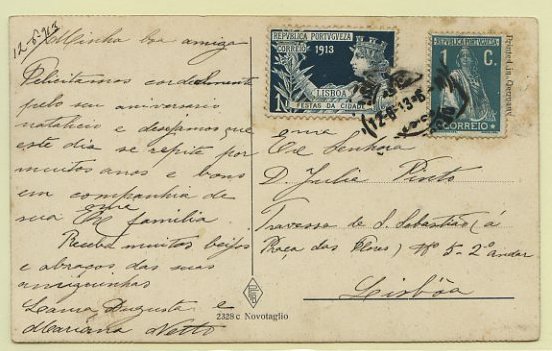 12-6-913
Minha boa amiga
Felicitamos cordealmente
pelo seu aniversario
natalicio e desejamos que
este dia se repita por
muitos anos e bons
em companhia de
sua Exma familia.
Receba muitos beijos
e abraços das suas
amiguinhas
Laura Augusta e
Mariana Netto
2328 c Novotaglio
REPVBLICA PORTVGVEZA
CORREIO 1913
LISBOA
FESTAS DA CIDADE
REPVBLICA PORTVGVEZA
1 C.
CORREIO
Printed in Germany
Exma
Senhora
D. Julia Pinto
Travessa de S. Sebastião (á
Praça das Flores) Nº 5-2º andar
Lisbôa